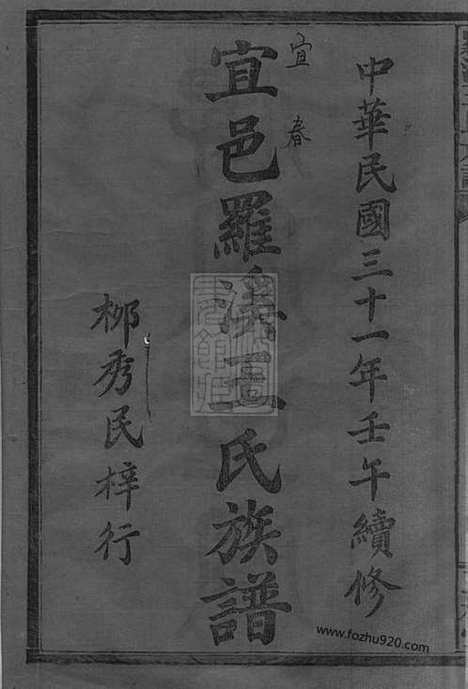 中華民國三十一年壬午續修
宜春
宜邑羅漢王氏族譜
柳秀民梓行
www.fozhu920.com